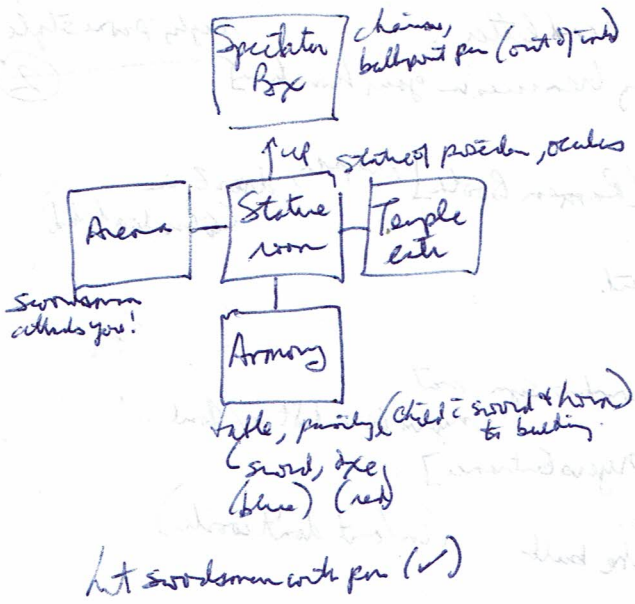 Spectator
Box
chairs,
ballpoint pen (out of ink)
↑up
Statue of poseidon, oculus
Arena
Statue
room
Temple
swordsman
attacks you!
Armory
table, painting (child c̄ sword & horn)
to building
(sword, axe,
(blue) (red)
hit swordsman with pen (✓)